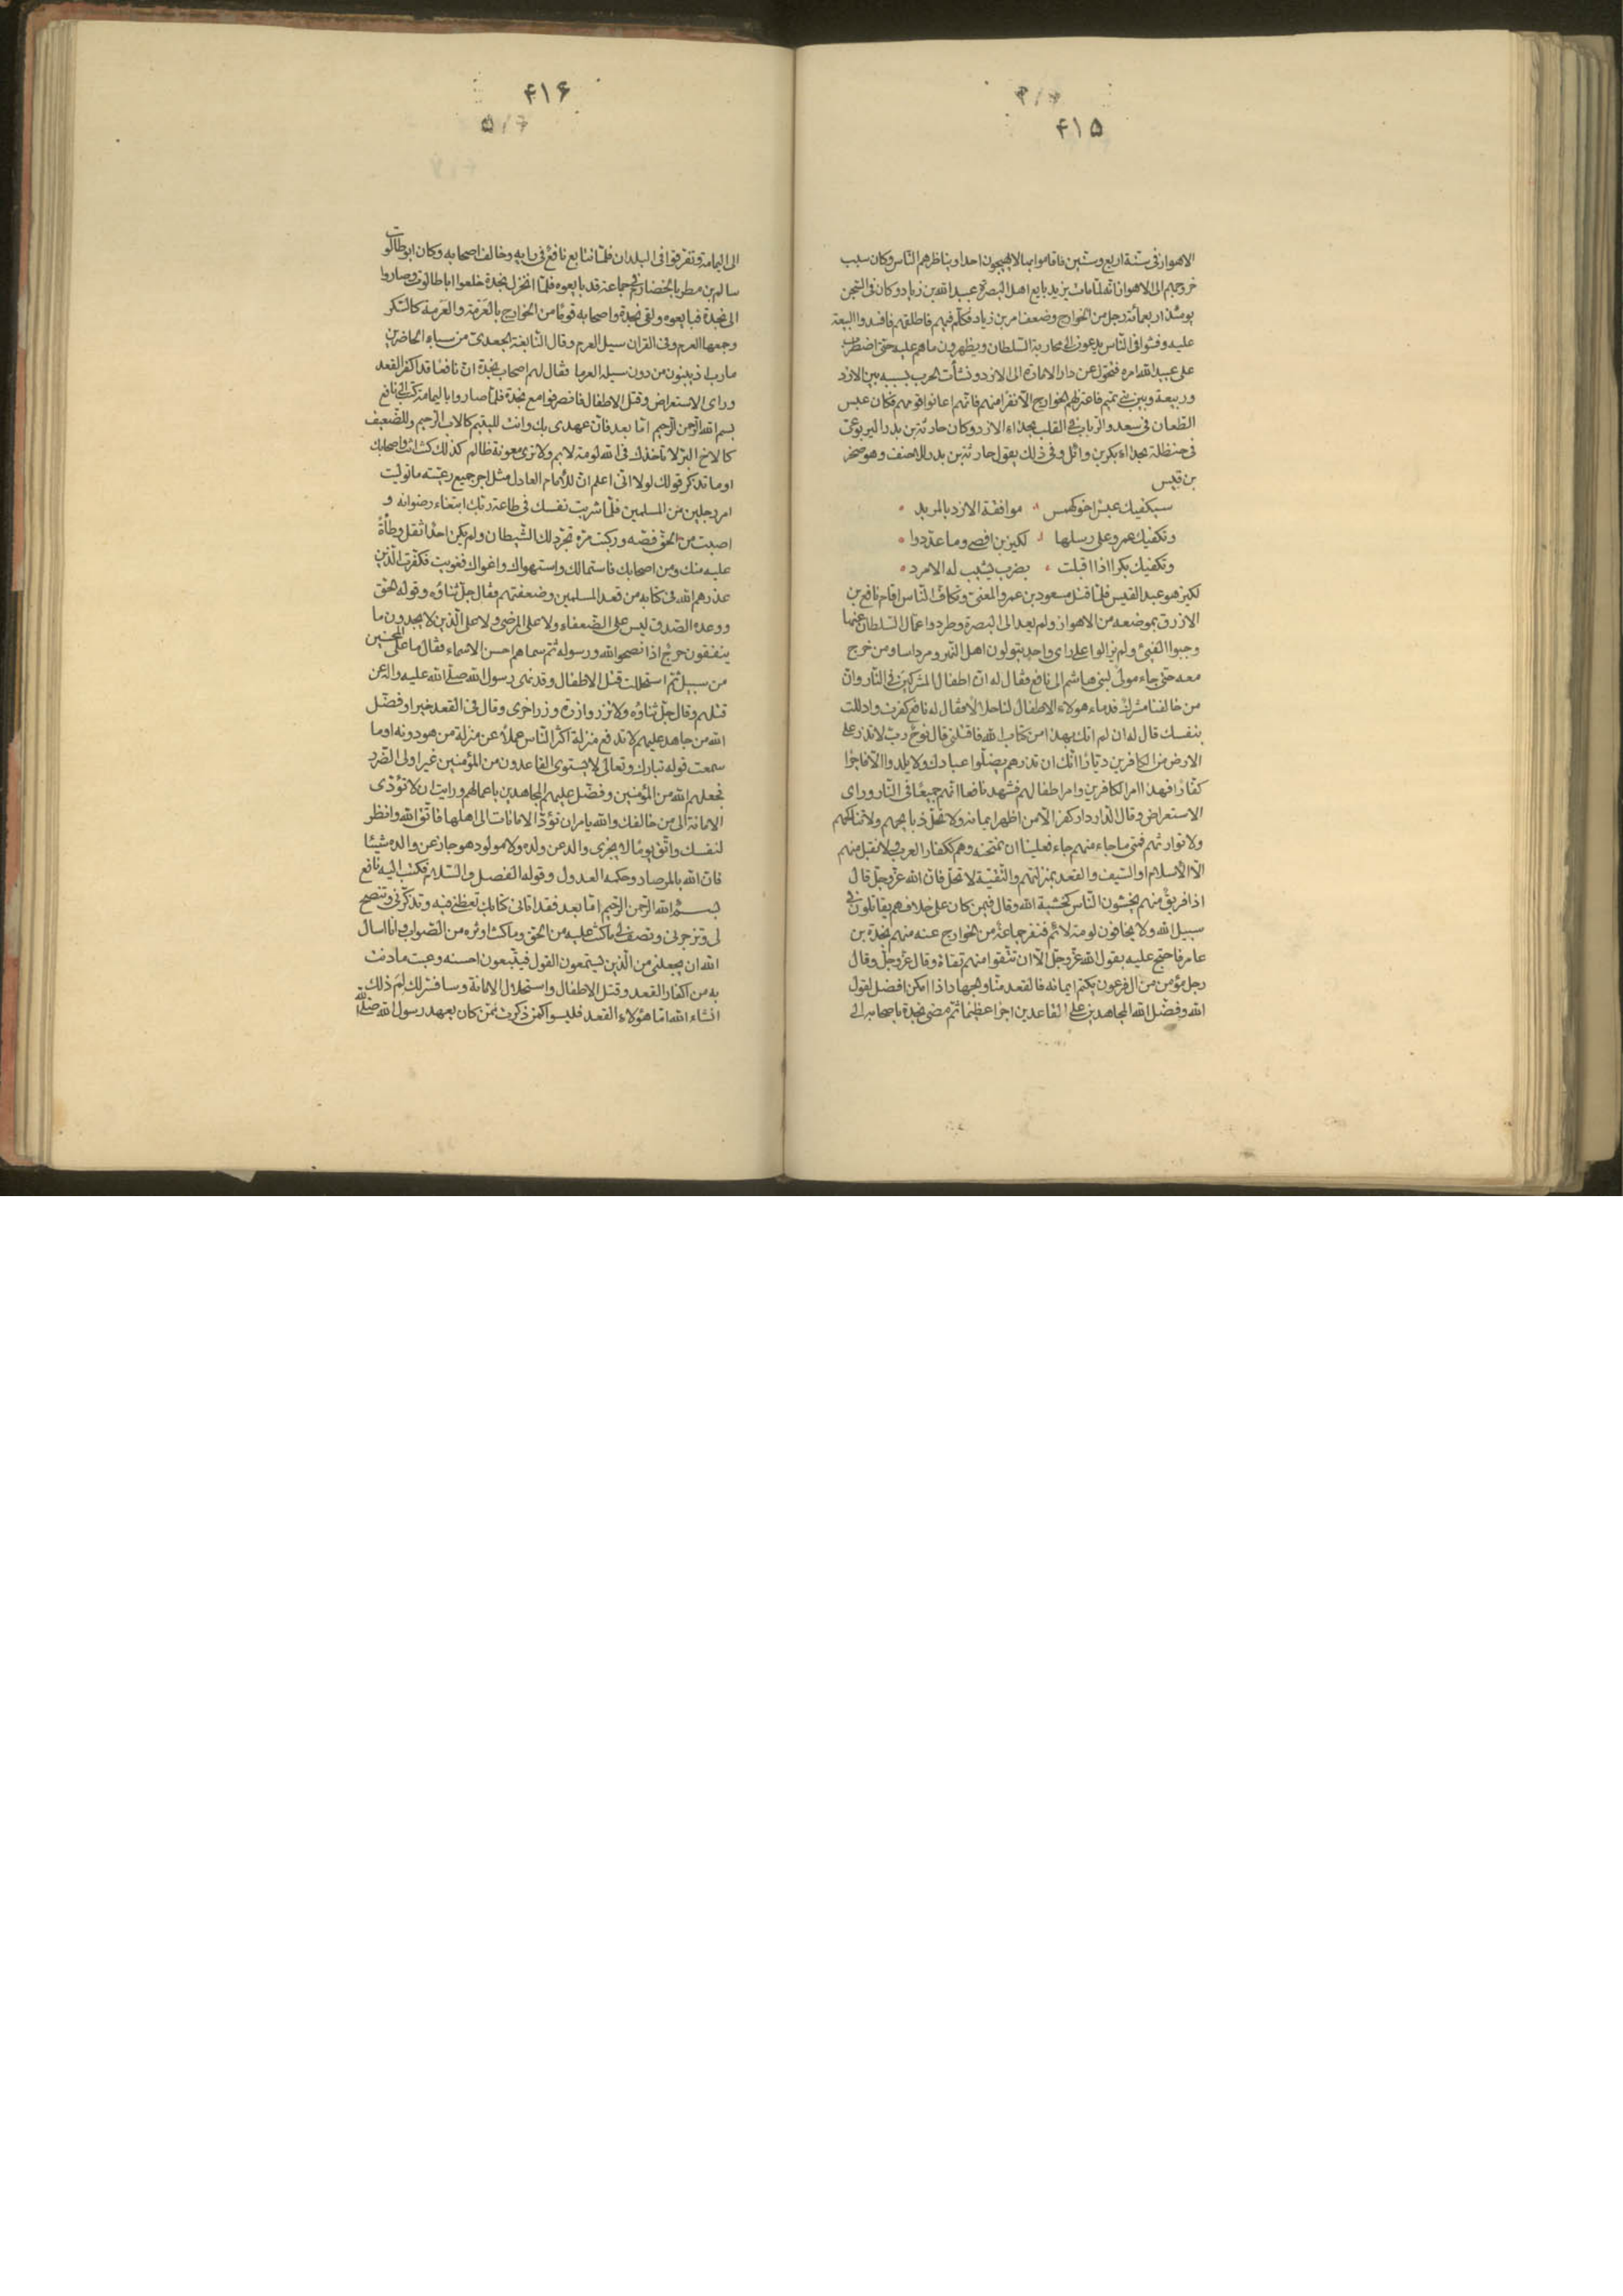 ۴۱۵
الاهواز فی سنة اربع و ستین فاقاموا بها لا یهیجون احدا و یناظرهم النّاس و کان سبب
خروجهم الی الاهواز انّه لمّا مات یزید بایع اهل البصرة عبید الله بن زیاد و کان فی السّجن
یومئذ اربعمائة رجل من الخوارج و ضعف امر بن زیاد فکلّم فیهم فاطلقهم فافسدوا البیعة
علیه و فشوا فی النّاس یدعون الی محاربة السّلطان و یظهرون ما هم علیه حتی اضطرب
علی عبید الله امره فتحوّل عن دار الامارة الی الازد و نشأت الحرب بسببه بین الازد
و ربیعة و بین بنی تمیم فاعتزلهم الخوارج الّا نفرا منهم فانّهم اعانوا قومهم فکان عبس
الطّعان فی سعد و الرّباب فی القلب بحذاء الازد و کان حارثة بن بدر الیربوعیّ
فی حنظلة بحذاء بکر بن وائل و فی ذلک یقول حارثة بن بدر للاحنف و هو صخر
بن قیس
سیکفیک عبس اخو کهمس موافقة الازد بالمربد
و تکفیک عمرو علی رسلها لکیز بن افصی و ما عدّدوا
و تکفیک بکرا اذا اقبلت بضرب یشیب له الامرد
لکیز هو عبد القیس فلمّا قتل مسعود بن عمرو المعنیّ و تکافّ النّاس اقام نافع بن
الازرق بموضعه من الاهواز و لم یعد الی البصرة و طردوا عمّال السّلطان عنها
و جبوا الفیئ و لم یزالوا علی رای واحد یتولون اهل النّهر و مرداسا و من خرج
معه حتی جاء مولی لبنی هاشم الی نافع فقال له انّ اطفال المشرکین فی النّار و انّ
من خالفنا مشرک فدماء هولاء الاطفال لنا حلال فقال له نافع کفرت و ادللت
بنفسک قال له ان لم اتک بهذا من کتاب الله فاقتلنی قال نوح ربّ لا تذر علی
الارض من الکافرین دیّارا انّک ان تذرهم یضلّوا عبادک و لا یلدوا الّا فاجرا
کفّارا فهذا امر الکافرین و امر اطفالهم فشهد نافع انّهم جمیعا فی النّار و رای
الاستعراض و قال الدّار دار کفر الّا من اظهر ایمانه و لا تحلّ ذبایحهم و لا تناکحهم
و لا توارثهم فمتی ما جاء منهم جاء فعلینا ان نمتحنه و هم ککفّار العرب لا نقبل منهم
الّا الاسلام او السّیف و القعد بمنزلتهم و التّقیّة لا تحلّ فانّ الله عزّ و جلّ قال
اذا فریق منهم یخشون النّاس کخشیة الله و قال فیمن کان علی خلافهم یقاتلون فی
سبیل الله و لا یخافون لومة لائم فنفر جماعة من الخوارج عنه منهم نجدة بن
عامر فاحتجّ علیه بقول الله عزّ و جلّ الّا ان تتّقوا منهم تقاة و قال عزّ و جلّ و قال
رجل مؤمن من ال فرعون یکتم ایمانه فالقعد منّا و الجهاد اذا امکن افضل لقول
الله و فضّل الله المجاهدین علی القاعدین اجرا عظیما ثمّ مضی نجدة باصحابه الی
۴۱۶
الی الیمامة و تفرقوا فی البلدان فلمّا تتابع نافع فی رایه و خالف اصحابه و کان ابو طالوت
سالم بن مطر بالخضارم فی جماعة قد بایعوه فلمّا انخزل نجدة خلعوا ابا طالوت و صاروا
الی نجدة فبایعوه و لقی نجدة و اصحابه قوما من الخوارج بالعَرَمة و العَرِمة کالسّکر
و جمعها العرم و فی القران سیل العرم و قال النّابغة الجعدیّ من سباء الحاضرین
مارب اذ یبنون من دون سیله العرما فقال لهم اصحاب نجدة انّ نافعا قد اکفر القعد
و رای الاستعراض و قتل الاطفال فانصرفوا مع نجدة فلمّا صاروا بالیمامة کتب الی نافع
بسم الله الرّحمن الرّحیم امّا بعد فانّ عهدی بک و انت للیتیم کالاب الرّحیم و للضّعیف
کالاخ البرّ لا تاخذک فی الله لومة لایم و لا تری معونة ظالم کذلک کنت انت و اصحابک
او ما تذکر قولک لولا انّی اعلم انّ للامام العادل مثل اجر جمیع رعیّته ما تولیت
امر رجلین من المسلمین فلمّا شریت نفسک فی طاعة ربّک ابتغاء رضوانه و
اصبت من الحق فصّه و رکبت مرّه تجرّد لک الشّیطان و لم یکن احد اثقل وطأة
علیه منک و من اصحابک فاستمالک و استهواک و اغواک فغویت فکفّرت الّذین
عذرهم الله فی کتابه من قعد المسلمین و ضعفتهم فقال جلّ ثناؤه و قوله الحق
و وعده الصّدق لیس علی الضّعفاء و لا علی المرضی و لا علی الّذین لا یجدون ما
ینفقون حرج اذا نصحوا لله و رسوله ثمّ سماهم احسن الاسماء فقال ما علی المحسنین
من سبیل ثمّ استحللت قتل الاطفال و قد نهی رسول الله صلّی الله علیه و اله عن
قتلهم و قال جلّ ثناؤه و لا تزر وازرة وزر اخری و قال فی القعد خیرا و فضّل
الله من جاهد علیهم لا تدفع منزلة اکثر النّاس عملا عن منزلة من هو دونه او ما
سمعت قوله تبارک و تعالی لا یستوی القاعدون من المؤمنین غیر اولی الضّرر
فجعلهم الله من المؤمنین و فضّل علیهم المجاهدین باعمالهم و رایت ان لا تؤدّی
الامانة الی من خالفک و الله یامر ان تؤدّ الامانات الی اهلها فاتّق الله و انظر
لنفسک و اتّق یوما لا یجزی والد عن ولده و لا مولود هو جاز عن والده شیئا
فان الله بالمرصاد و حکمه العدول و قوله الفصل و السّلام فکتب الیه نافع
بسم الله الرّحمن الرّحیم امّا بعد فقد اتانی کتابک تعظنی فیه و تذکّرنی و تنصح
لی و تزجرنی و تصف لی ما کنت علیه من الحق و ما کنت اوثره من الصّواب و انا اسال
الله ان یجعلنی من الّذین یستمعون القول فیتّبعون احسنه و عبت ما دنت
به من اکفار القعد و قتل الاطفال و استحلال الامانة و سافسّر لک لِمَ ذلک
انشاء الله امّا هؤلاء القعد فلیسوا کمن ذکرت ممّن کان بعهد رسول الله صلّی الله